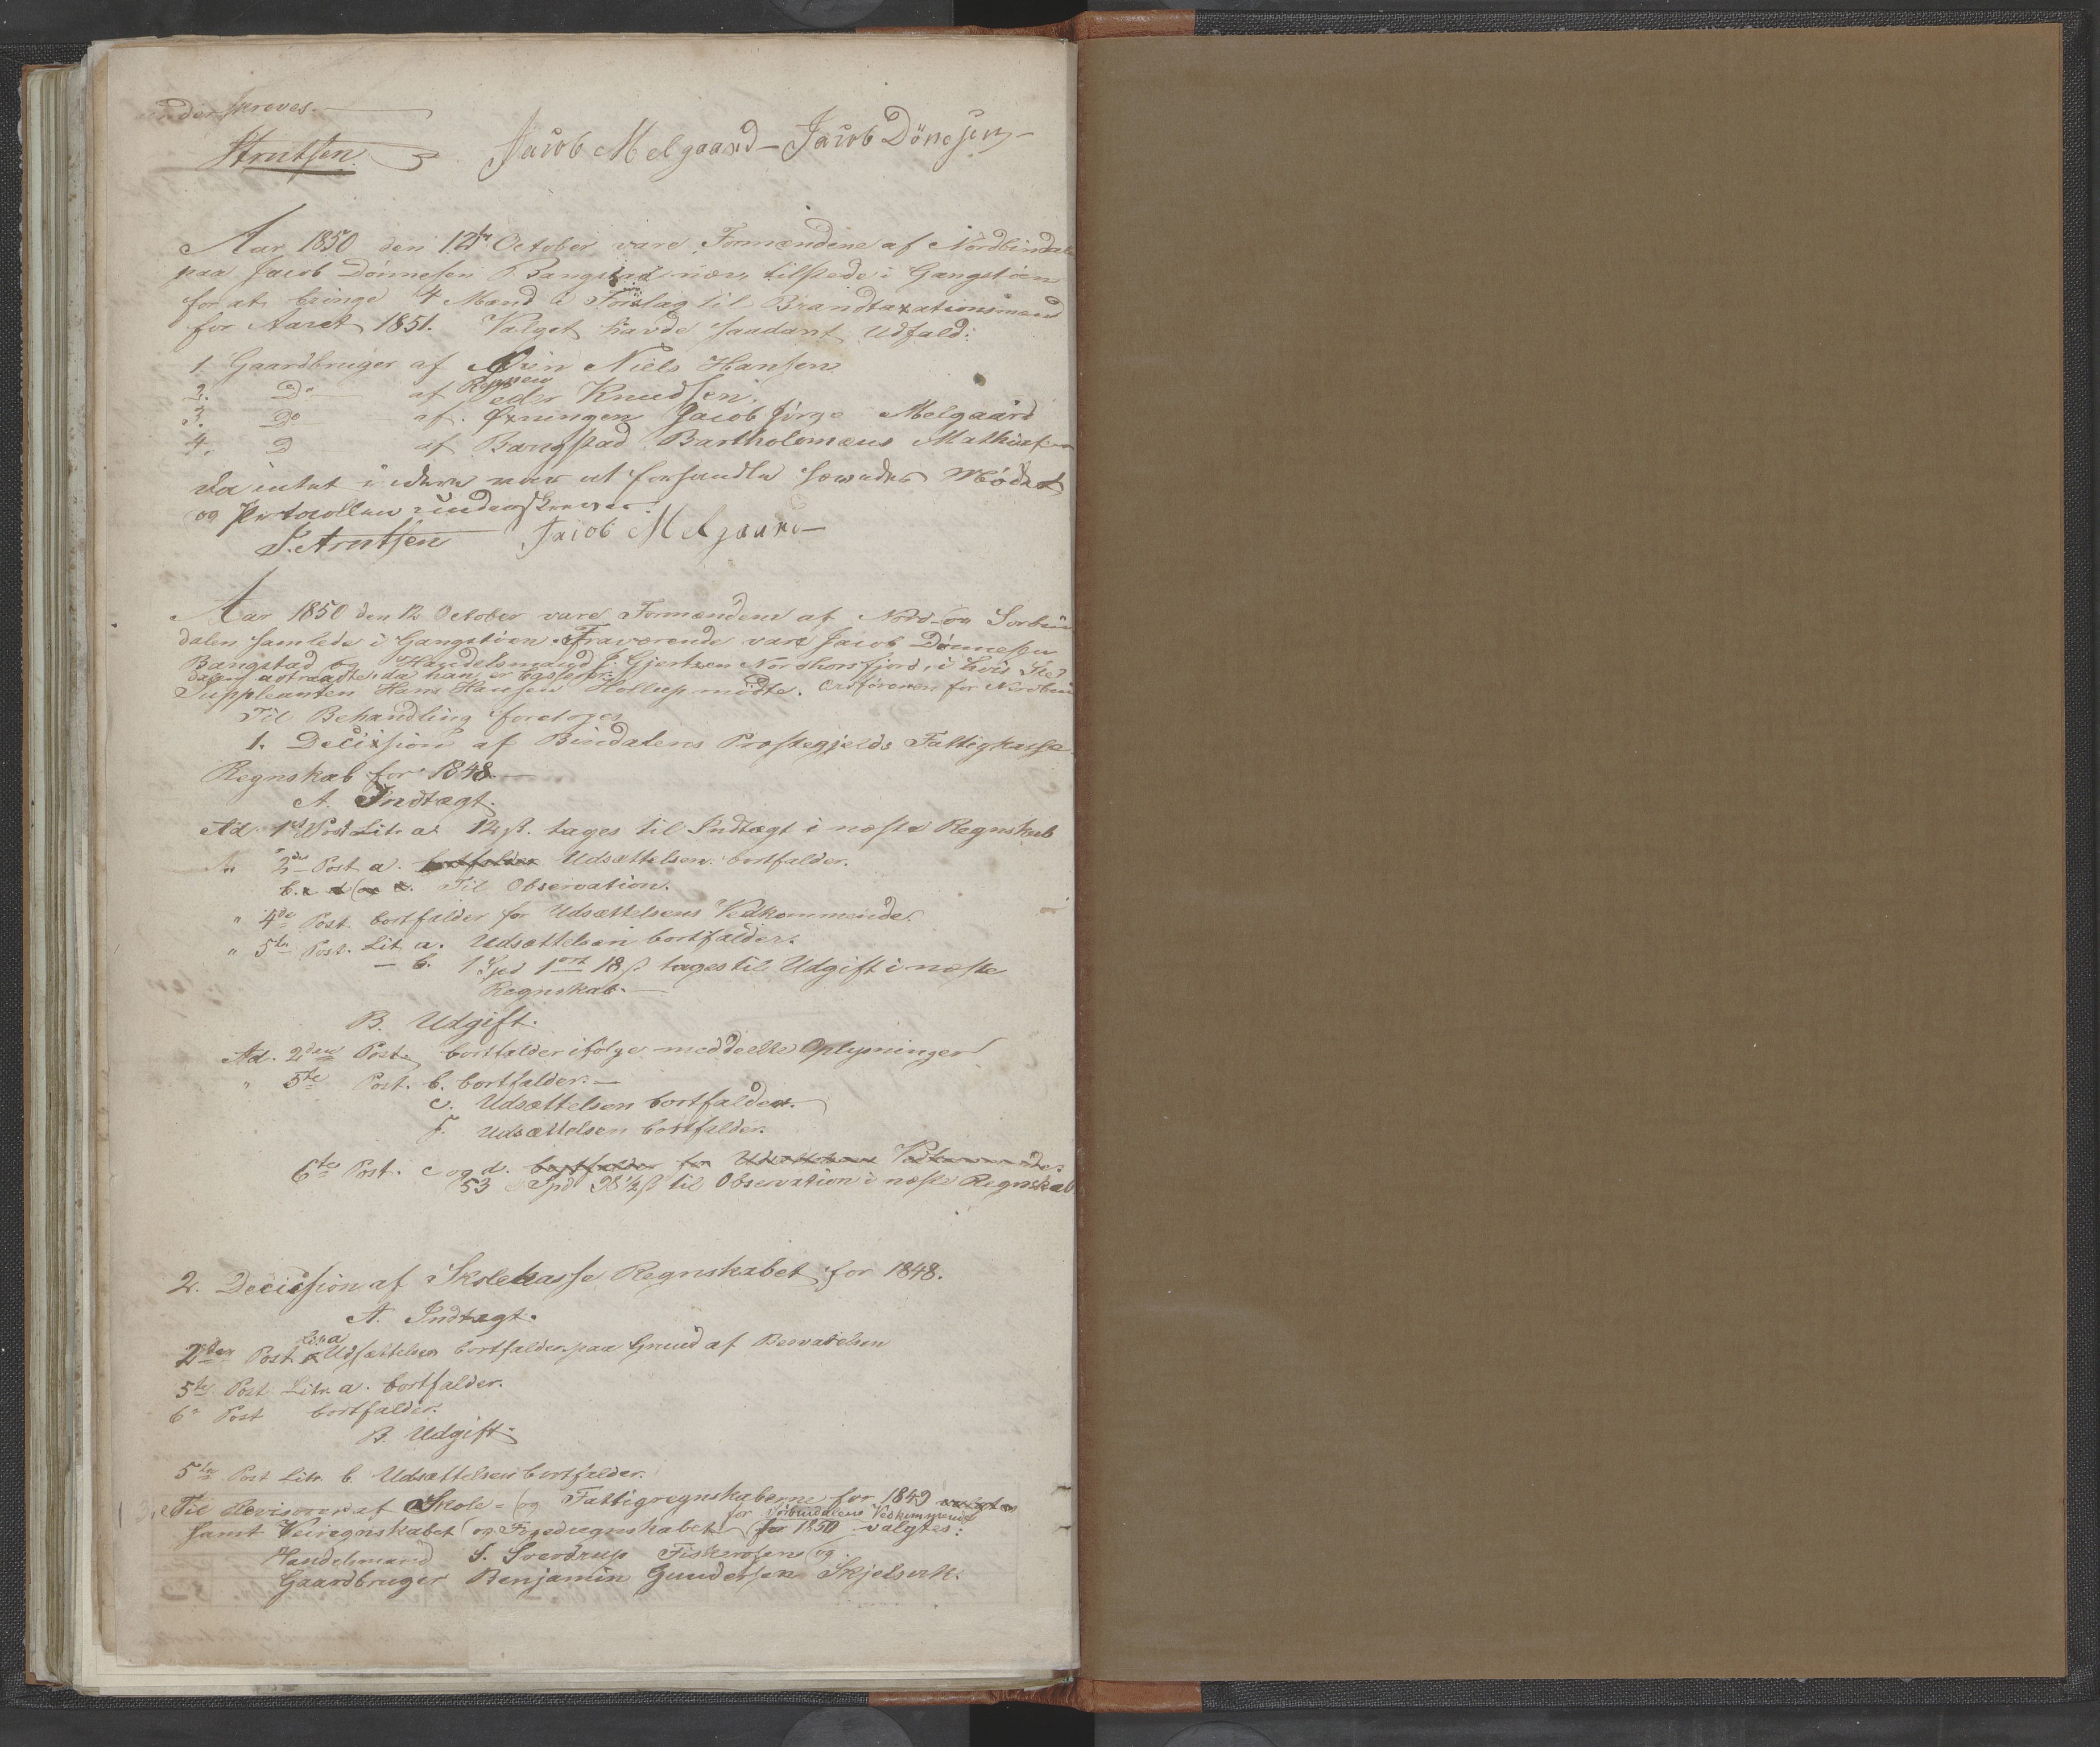 underskreves.
Arntsen. Jacob Melgaard – Jacob Dönesen –
Aar 1850 den 12te October vare Formændene af Nordbindalen
paa Jacob Dönnesen Bangstad nær, tilstede i Gangstöen
for at bringe 4 Mænd i Forslag til Brandtaxationsmænd
for Aaret 1851. Valget havde saadant Udfald:
1 Gaardbruger af Niels Hansen
2. Do af Peder Knudsen
3. Do af Øxningen Jacob Jörge Melgaard
4. D af Bangstad Bartholomæus Mathiasen
da intet videre var at forhandle hævedes Mödet
og Protocollen underskreves.
S. Arntsen Jacob Melgaard –
Aar 1850 den 12 October vare Formændene af Nord- og Sorbin
dalen samlede i Gangstöen. Fraværende vare Jacob Dönnesen
Bangstad og Handelsmand J. Gjertsen Nordhorsfjord, i hvis Sted
Suppleanten Hans Hansen Hollup mödte. Ordföreren for Nordbin
dalen
Til Behandling foretoges
1. Decision af Bindalens Præstegjelds Fattigkasse
Regnskab for 1848. –
A. Indtægt.
Ad. 1ste Post Litr a. 12 ß. tages til Indtægt i næste Regnskab
" 2den Post a. bortfalder Udsættelsen bortfalder.
b. Til Observation.
" 4de Post. bortfalder for Udsættelsens Vedkommende.
" 5te Post. Lit a. Udsættelsen bortfalder.
– b. 1 Spd 1 ort 18 ß tages til Udgift i næste
Regnskab. –
B. Udgift.
Ad. 2den Post. bortfalder ifölge meddeelte Oplysninger
" 5te Post. b. bortfalder. –
c. Udsættelsen bortfalder.
f. Udsættelsen bortfalder.
6te Post. c og d. bortfalder for Udsættelsens Vedkommende.
53 Spd 98½ ß til Observation i næste Regnskab
2. Decision af Skolekasse Regnskabet for 1848.
A. Indtægt.
2den Post Litr a Udsættelsen bortfalder paa Grund af Besvarelsen
5te Post Litr. a. bortfalder.
6te Post bortfalder.
B. Udgift.
5te Post Litr b. Udsættelsen bortfalder.
Til Revisorer af Skole- og Fattigregnskaberne for 1849 valgtes
for Sörbindalens Vedkommende
samt Veiregnskabet og for 1850 valgtes:
Handelsmand S. Sverdrup Fiskerosen og
Gaardbruger Benjamin Gundersen Skjelsvik.